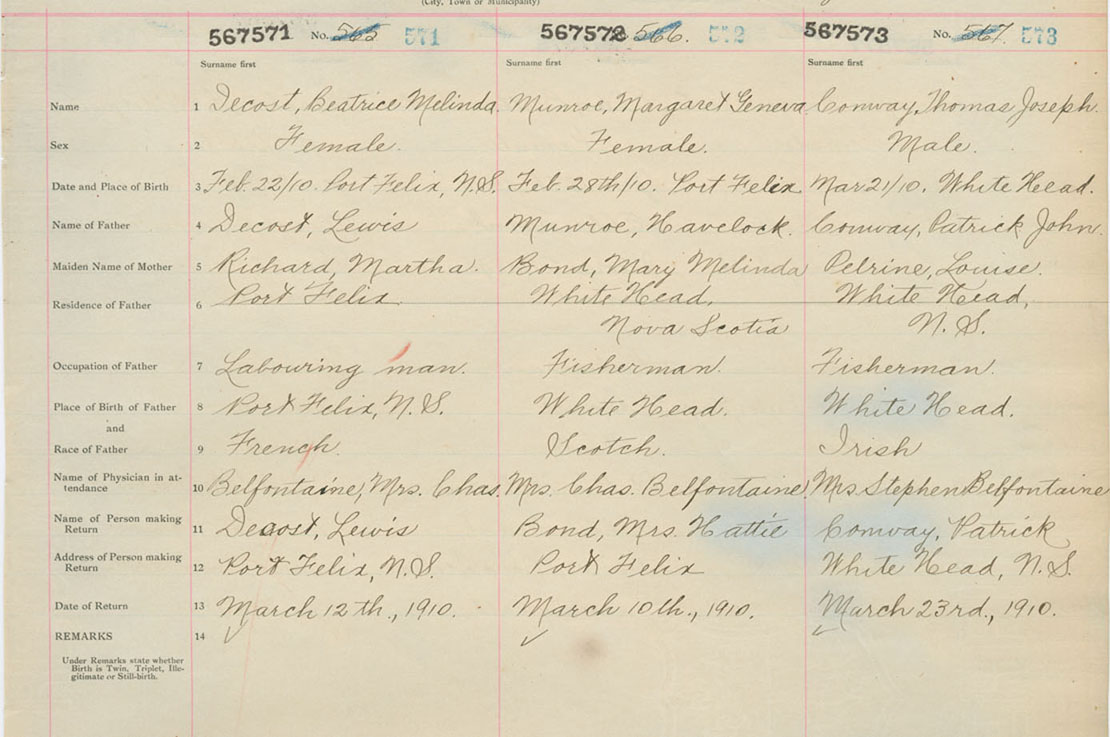 (City, Town or Municipality)
567571 No. 565 571 567572 566. 572 567573 No. 567 573
Surname first Surname first Surname first
Name 1 Decost, Beatrice Melinda Munroe, Margaret Geneva Conway, Thomas Joseph.
Sex 2 Female. Female. Male.
Date and Place of Birth 3 Feb. 22/10. Port Felix, N.S. Feb. 28th/10. Port Felix Mar 21/10. White Head.
Name of Father 4 Decost, Lewis Munroe, Havelock. Conway, Patrick John.
Maiden Name of Mother 5 Richard, Martha. Bond, Mary Melinda Pelrine, Louise.
Residence of Father 6 Port Felix White Head, White Head,
Nova Scotia N.S.
Occupation of Father 7 Labouring man. Fisherman. Fisherman.
Place of Birth of Father 8 Port Felix, N.S. White Head. White Head.
and
Race of Father 9 French. Scotch. Irish
Name of Physician in at-
tendance 10 Belfontaine, Mrs. Chas. Mrs. Chas. Belfontaine Mrs Stephen Belfontaine
Name of Person making
Return 11 Decost, Lewis Bond, Mrs. Hattie Conway, Patrick
Address of Person making
Return 12 Port Felix, N.S. Port Felix White Head, N.S.
Date of Return 13 March 12th., 1910. March 10th., 1910. March 23rd., 1910.
REMARKS 14
Under Remarks state whether
Birth is Twin, Triplet, Ille-
gitimate or Still-birth.